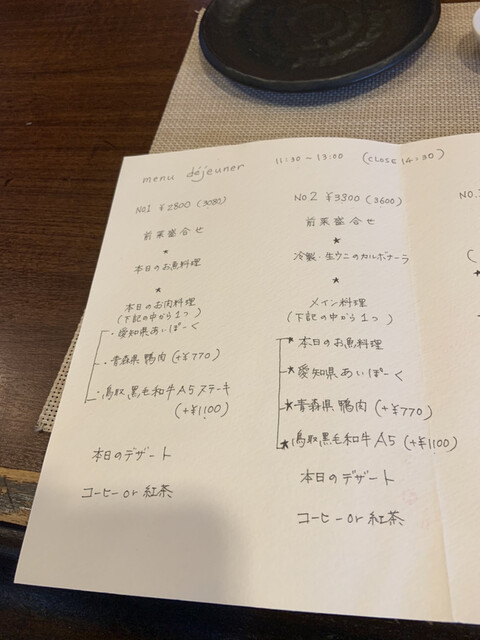 menu déjeuner 11:30 - 13:00 (CLOSE 14:30)
No1 ¥2800 (3080)
前菜盛合せ
★
本日のお魚料理
★
本日のお肉料理
(下記の中から1つ)
・愛知県あいぽーく
・青森県 鴨肉 (+¥770)
・鳥取 黒毛和牛A5ステーキ
(+¥1100)
本日のデザート
コーヒー or 紅茶
No2 ¥3300 (3600)
前菜盛合せ
★
冷製・生ウニのカルボナーラ
★
メイン料理
(下記の中から1つ)
★本日のお魚料理
★愛知県あいぽーく
★青森県 鴨肉 (+¥770)
★鳥取 黒毛和牛A5 (+¥1100)
本日のデザート
コーヒー or 紅茶
No.
(